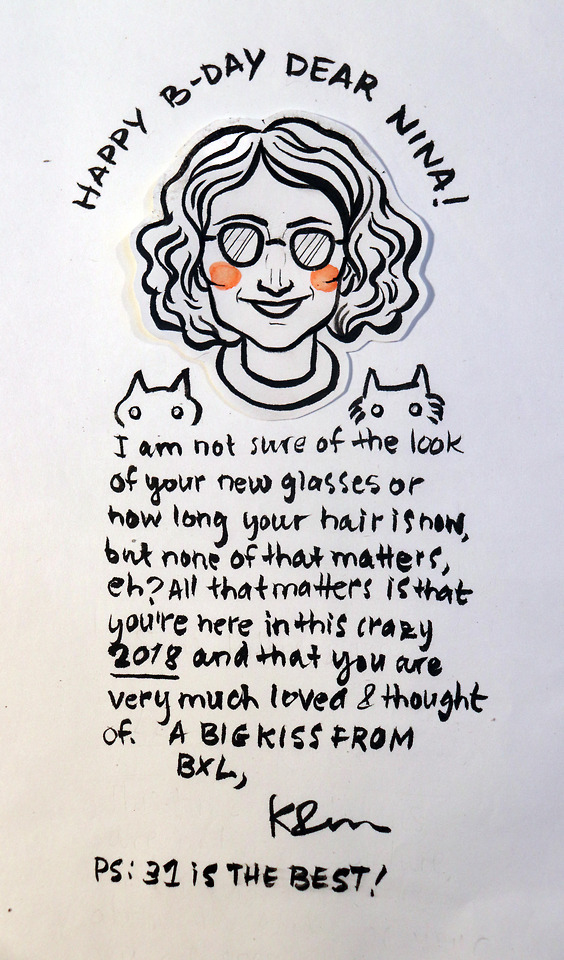 HAPPY B-DAY DEAR NINA!
I am not sure of the look
of your new glasses or
how long your hair is now,
but none of that matters,
eh? All that matters is that
you're here in this crazy
2018 and that you are
very much loved & thought
of. A BIG KISS FROM
BXL,
PS: 31 iS THE BEST!